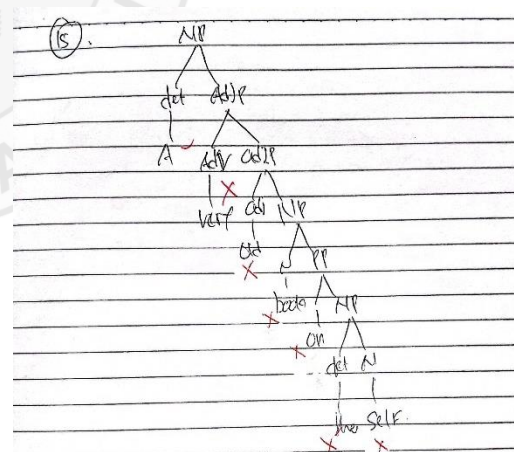 15.
NP
det AdjP
A Adv adjP
very adj NP
old N PP
books NP
on
det N
the Self.